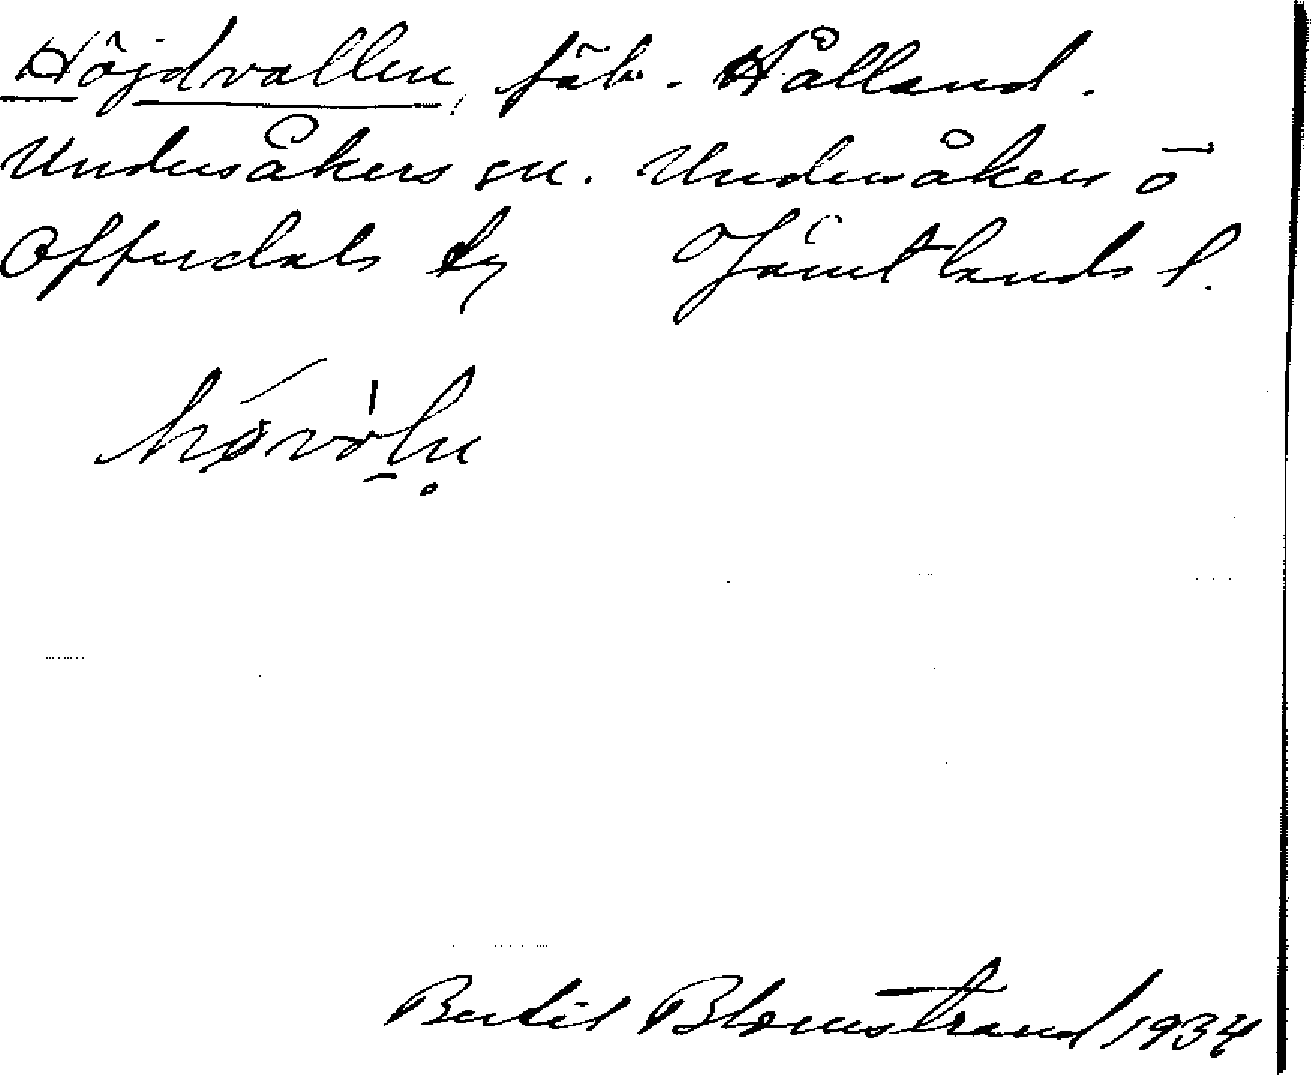 Höjdvallen, fäb. Hålland.
Undersåkers sn. Undersåkers o
Offerdals tg Jämtlands l.
Bertil Blomstrand 1934